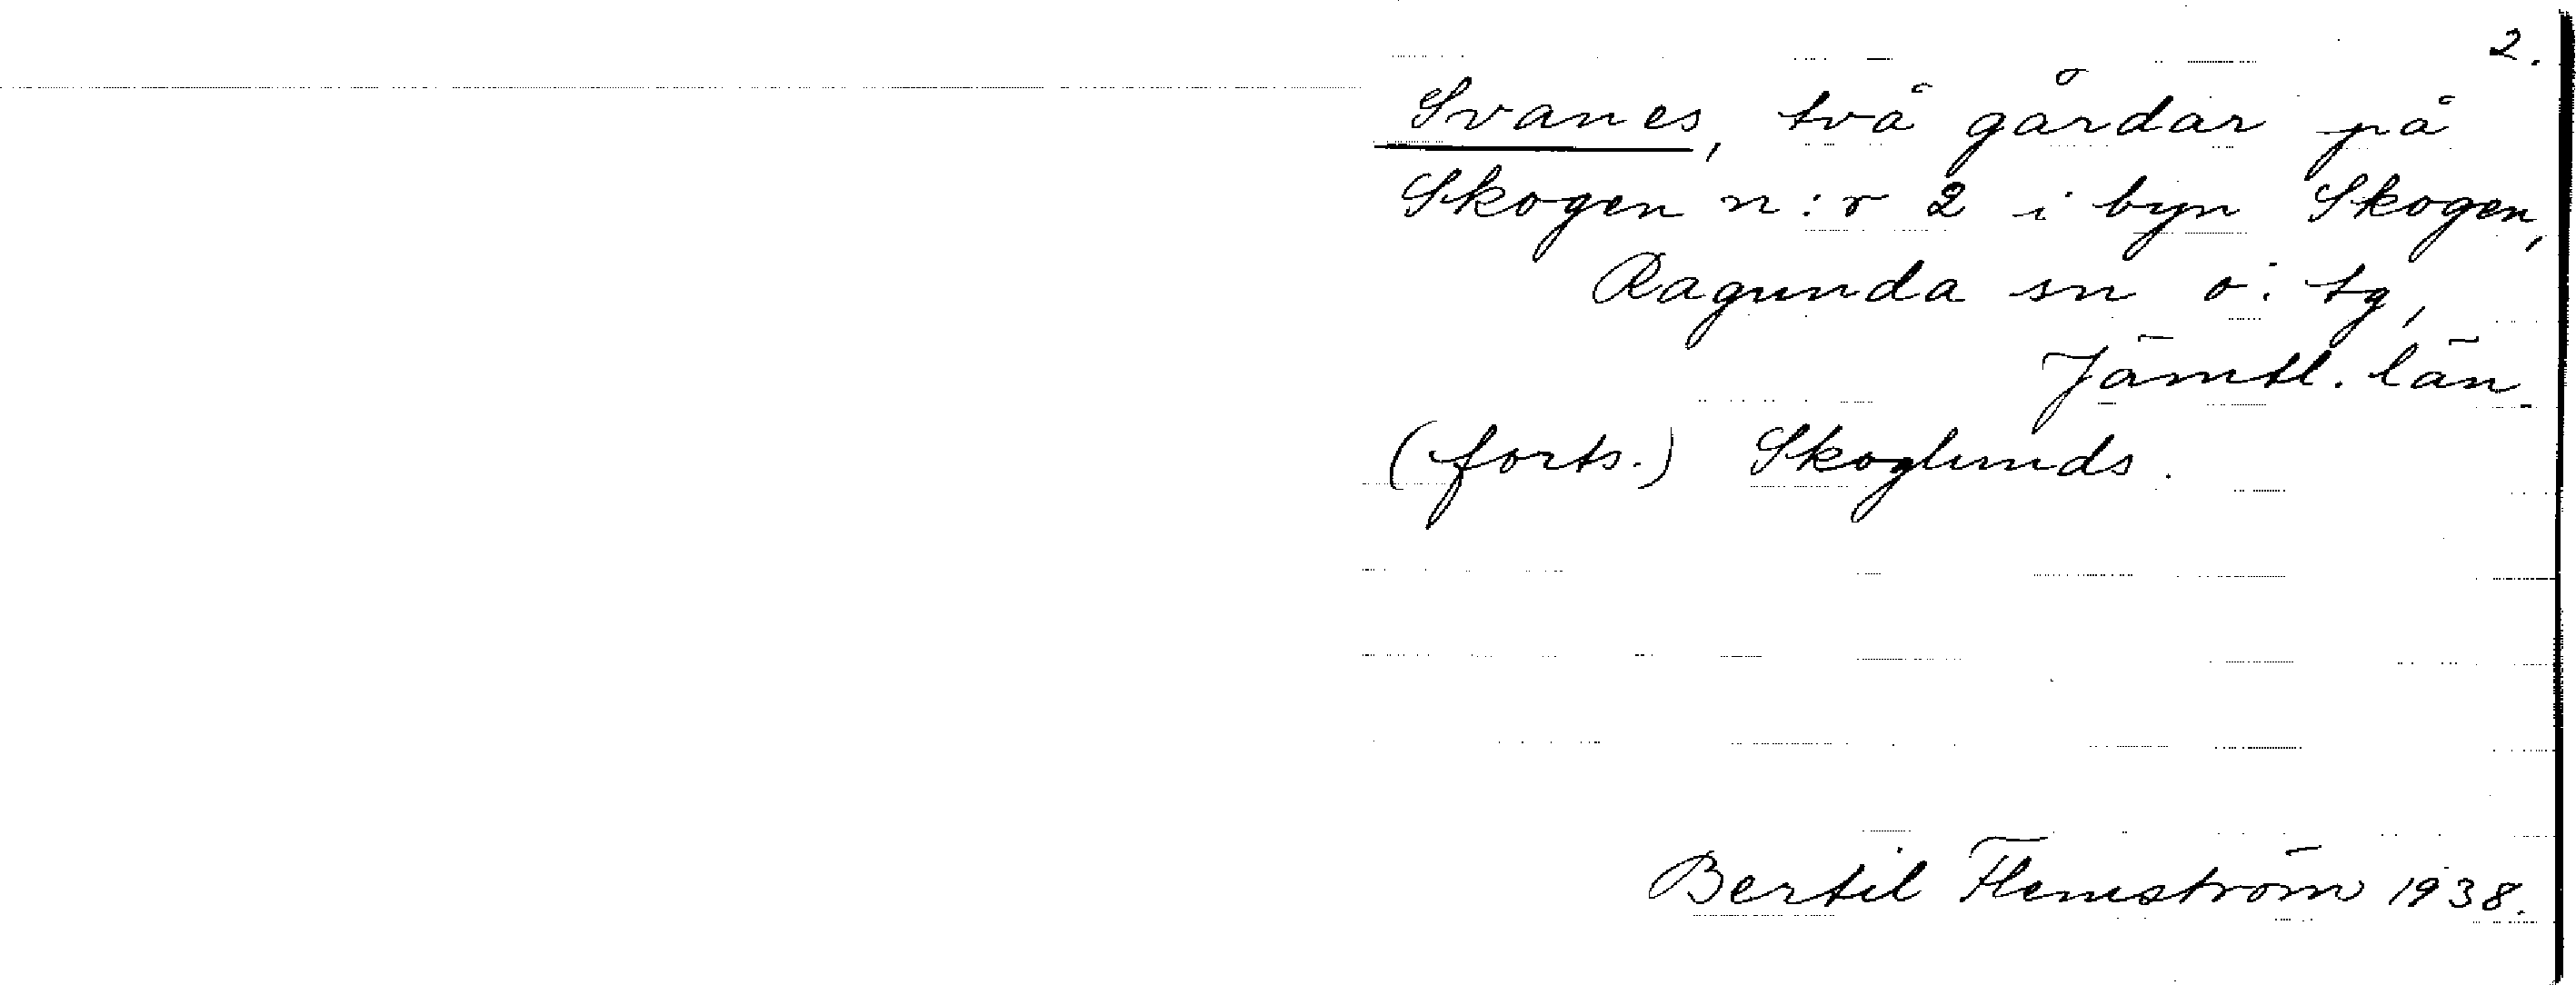 2.
Svanes, två gårdar på
Skogen n:r 2 i byn Skogen,
Ragunda sn o. tg,
Jämtl. län.
(forts.) Skoglunds.
Bertil Flemström 1938.